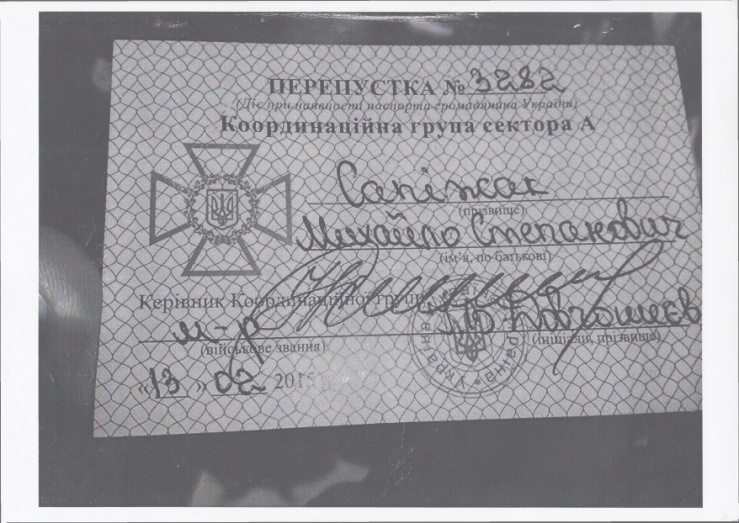 ПЕРЕПУСТКА № 3282
(Діє при наявності паспорта громадянина України)
Координаційна група сектора А
(прізвище)
Михайло Степанович
(ім'я, по батькові)
Керівник Координаційної групи
м-р
(військове звання)
(ініціали, прізвище)
«13» 02 2015